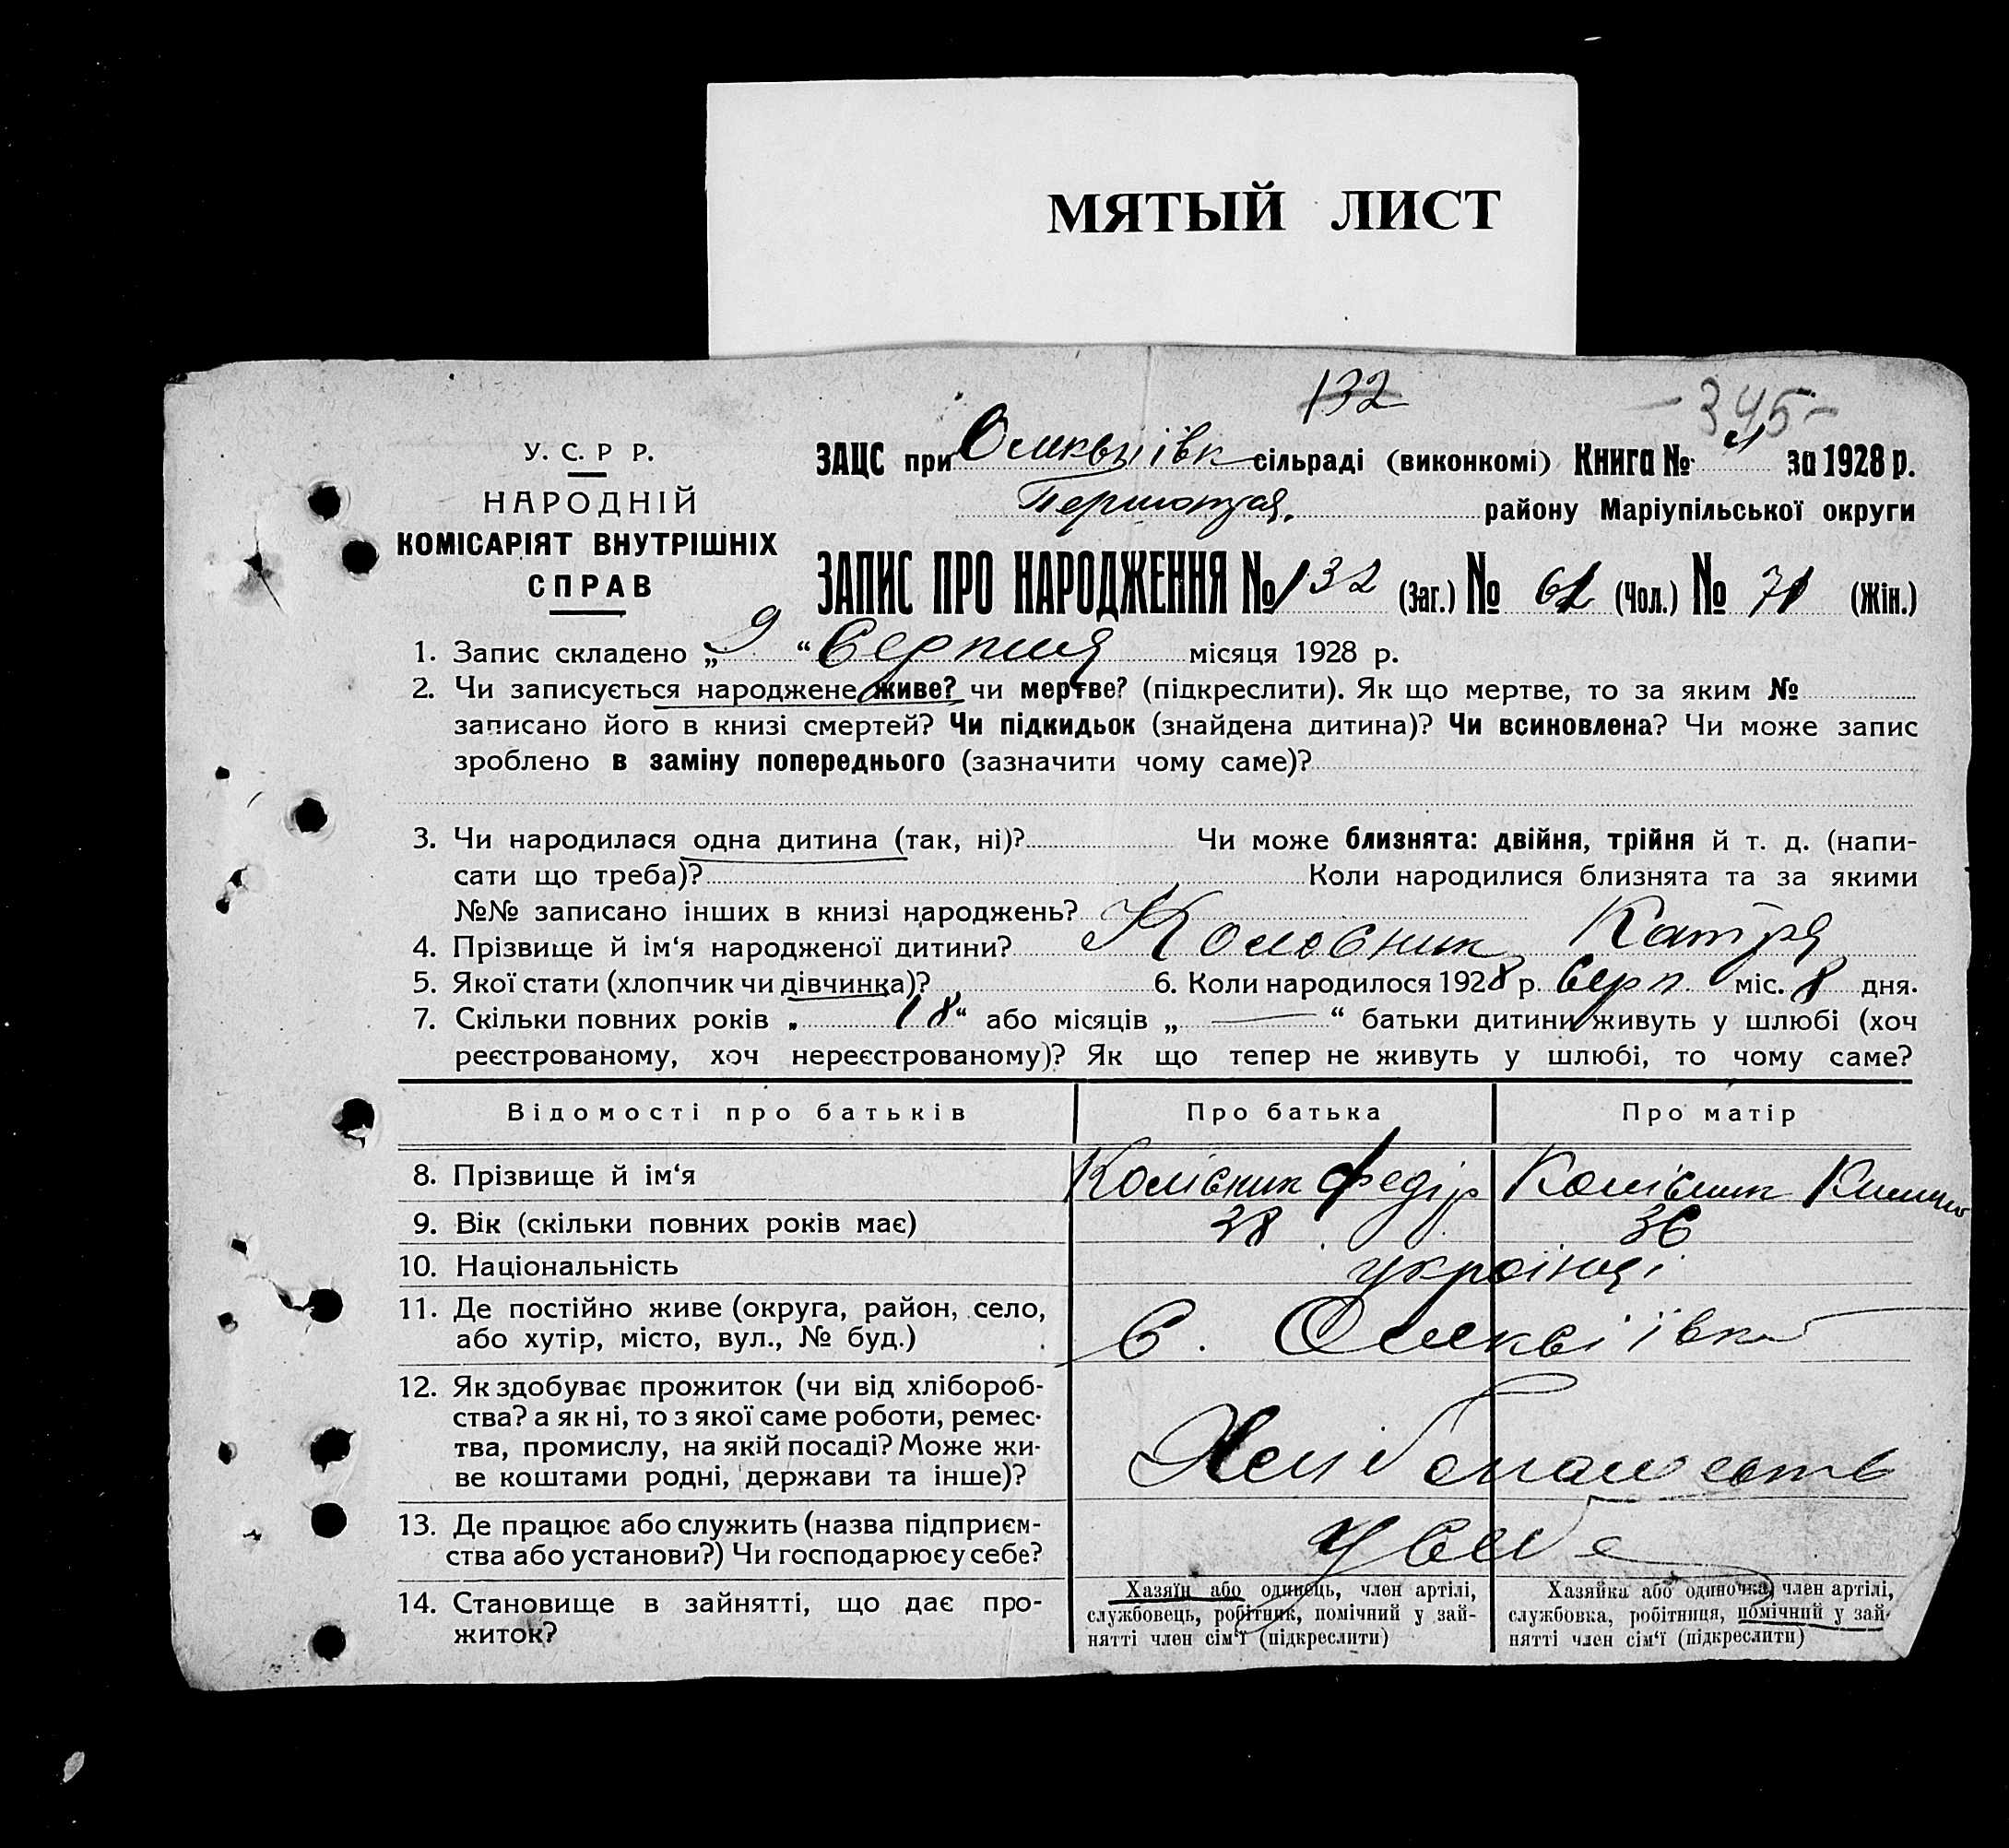 МЯТЫЙ ЛИСТ
132
-345-
У. С. Р Р.
ЗАЦС при сільраді (виконкомі) Книга № за 1928 р.
НАРОДНІЙ
району Маріупільської округи
КОМІСАРІЯТ ВНУТРІШНІХ
СПРАВ
ЗАПИС ПРО НАРОДЖЕННЯ № 132 (Заг.) № 61 (Чол.) № 71 (Жін.)
1. Запис складено „ 9 “ Серпня місяця 1928 р.
2. Чи записується народжене живе? чи мертве? (підкреслити). Як що мертве, то за яким №
записано його в книзі смертей? Чи підкидьок (знайдена дитина)? Чи всиновлена? Чи може запис
зроблено в заміну попереднього (зазначити чому саме)?
3. Чи народилася одна дитина (так, ні)? Чи може близнята: двійня, трійня й т. д. (напи-
сати що треба)? Коли народилися близнята та за якими
№№ записано інших в книзі народжень?
4. Прізвище й ім‘я народженої дитини? Колісник Катря
5. Якої стати (хлопчик чи дівчинка)? 6. Коли народилося 1928 р. Серп. міс. 8 дня.
7. Скільки повних років „ 18 “ або місяців „ — “ батьки дитини живуть у шлюбі (хоч
реєстрованому, хоч нереєстрованому)? Як що тепер не живуть у шлюбі, то чому саме?
Відомості про батьків Про батька Про матір
8. Прізвище й ім‘я Колісник Федір Колісник
9. Вік (скільки повних років має) 38 36
10. Національність українці
11. Де постійно живе (округа, район, село,
або хутір, місто, вул., № буд.) с.
12. Як здобуває прожиток (чи від хлібороб-
ства? а як ні, то з якої саме роботи, ремес-
тва, промислу, на якій посаді? Може жи-
ве коштами родні, держави та інше)?
13. Де працює або служить (назва підприєм-
ства або установи?) Чи господарює у себе? У себе
14. Становище в зайнятті, що дає про-
житок?
Хазяїн або одинець, член артілі,
службовець, робітник, помічний у зай-
нятті член сім‘ї (підкреслити)
Хазяйка або одиночка, член артілі,
службовка, робітниця, помічний у зай-
нятті член сім‘ї (підкреслити)